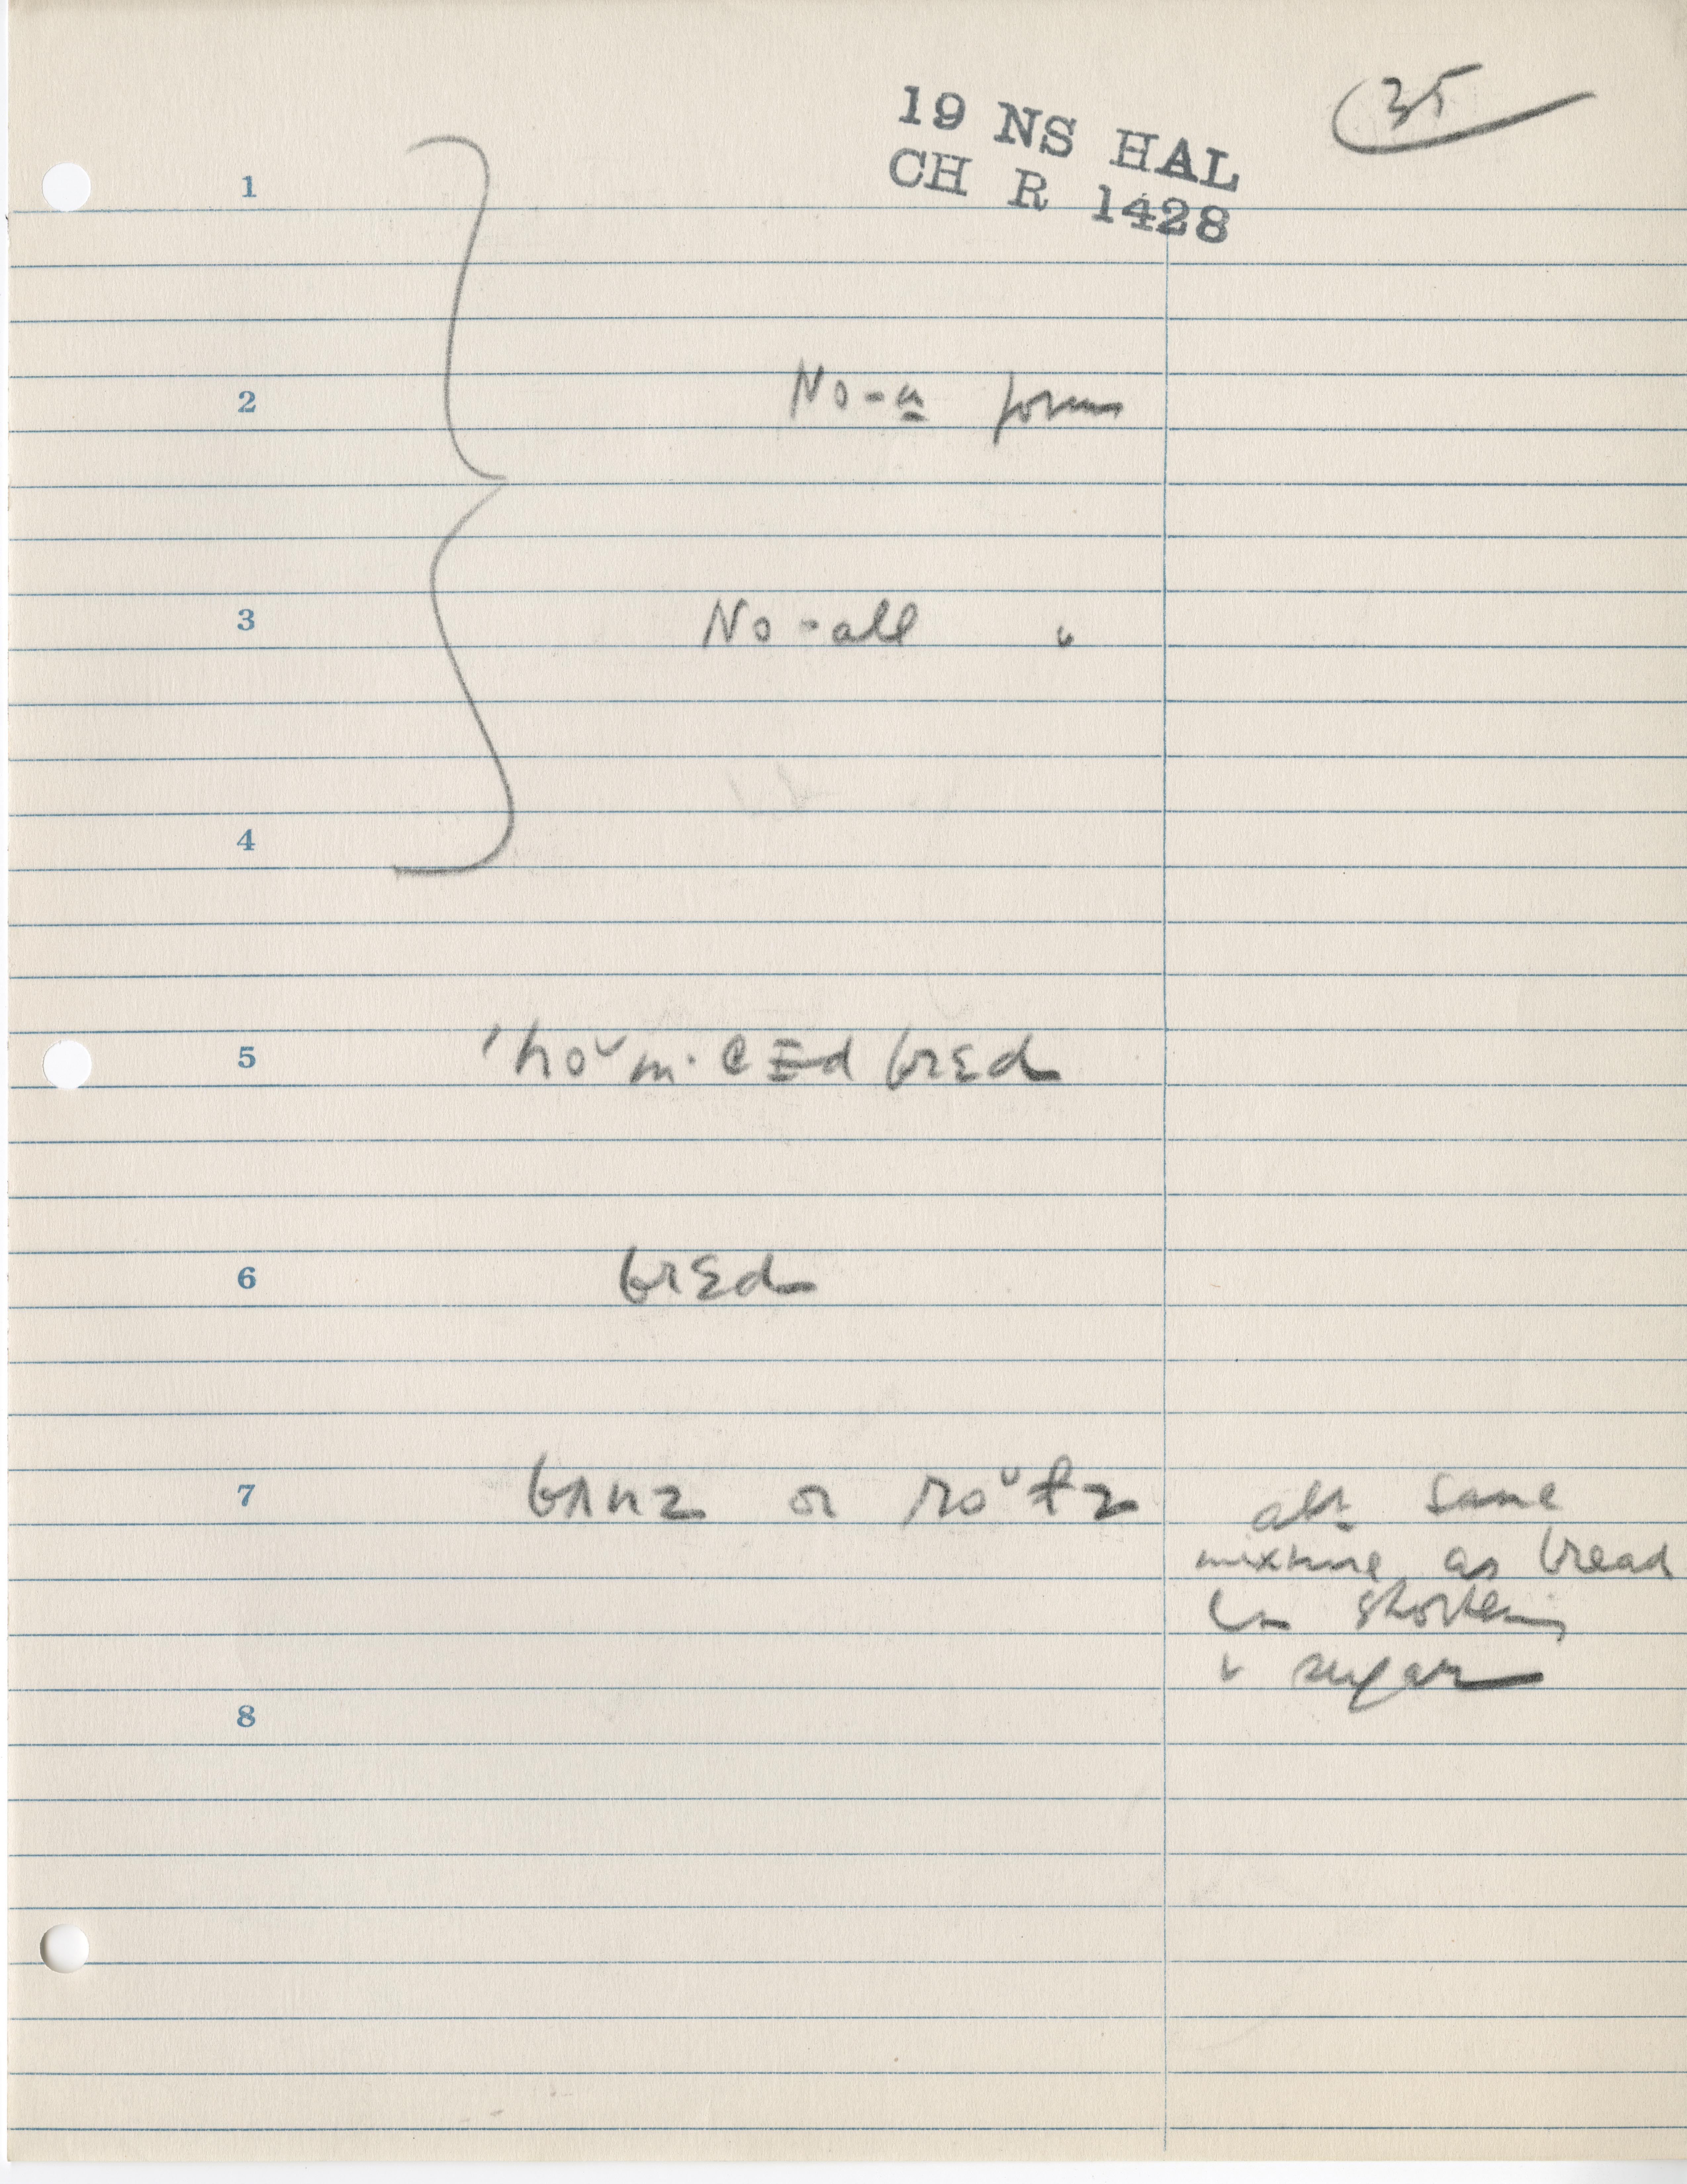 35
19 NS HAL
CH R 1428
1
2 No-a forms
3 No-all "
4
5 brɛd
6 brɛd
7 bʌnz or roᵘlz all same
mixture as bread
shortening
& sugar
8